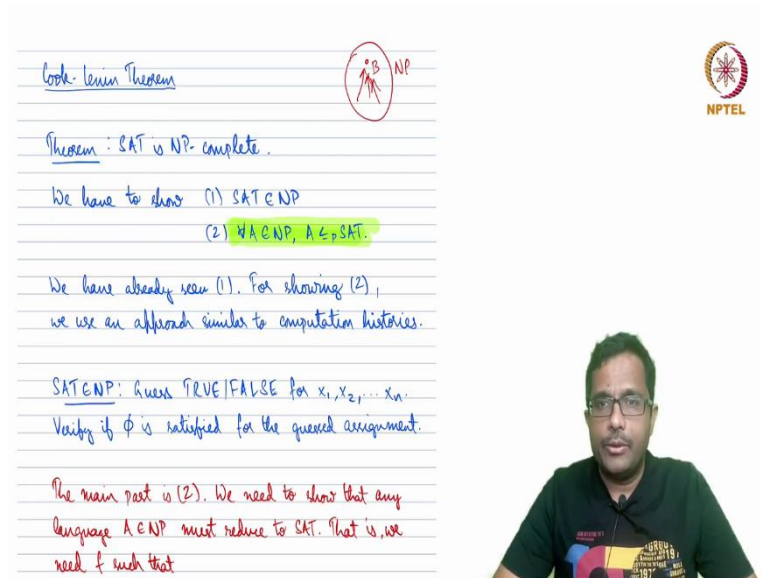 Cook-Levin Theorem
B NP
NPTEL
Theorem : SAT is NP-complete.
We have to show (1) SAT ∈ NP
(2) ∀A ∈ NP, A ≤p SAT.
We have already seen (1). For showing (2),
we use an approach similar to computation histories.
SAT ∈ NP : Guess TRUE/FALSE for x₁, x₂, ... xₙ.
Verify if ϕ is satisfied for the guessed assignment.
The main part is (2). We need to show that any
language A ∈ NP must reduce to SAT. That is, we
need f such that